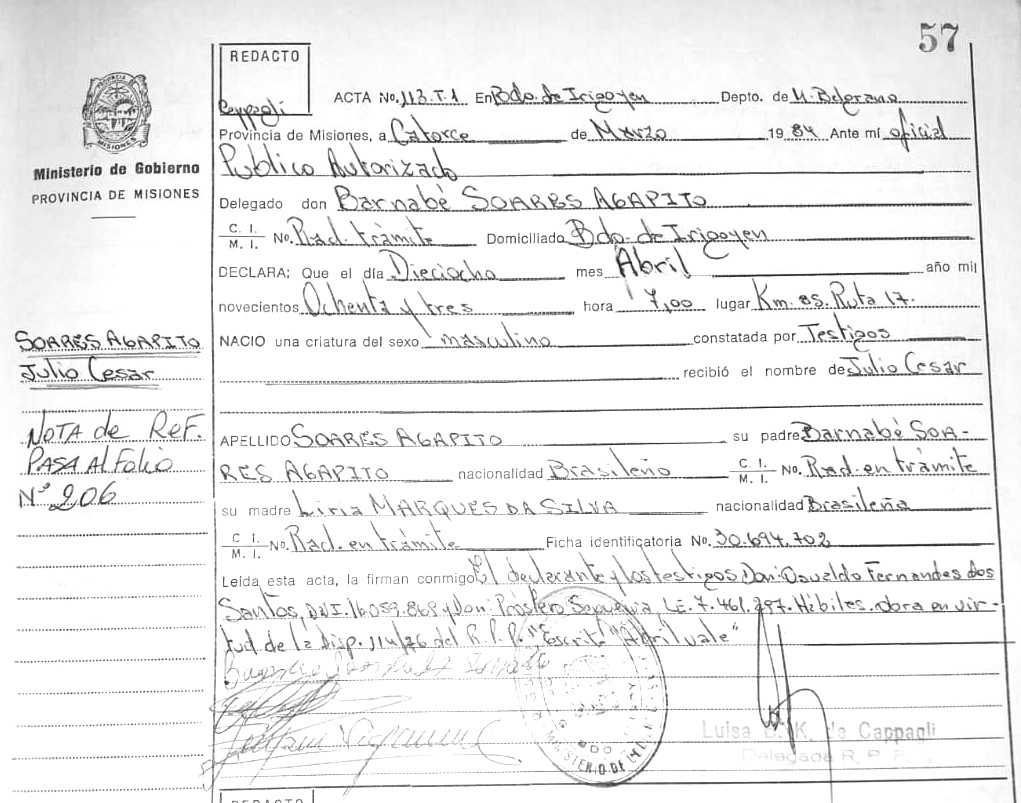 57
REDACTO
Cappagli
ACTA No. 113.T.1 En Bdo. de Irigoyen Depto. de M. Belgrano
Provincia de Misiones, a Catorce de Marzo 1984 Ante mí oficial
Público Autorizado
Delegado don Barnabé SOARES AGAPITO
C. I.
M. I. No. Rad. trámite Domiciliado Bdo. de Irigoyen
DECLARA; Que el día Dieciocho mes Abril año mil
novecientos Ochenta y tres hora 7,00 lugar Km. 85. Ruta 17.
NACIO una criatura del sexo masculino constatada por Testigos
recibió el nombre de Julio Cesar
APELLIDO SOARES AGAPITO su padre Barnabé SOA-
RES AGAPITO nacionalidad Brasileño C. I. M. I. No. Rad. en trámite
su madre Liria MARQUES DA SILVA nacionalidad Brasileña
C. I.
M. I. No. Rad. en trámite Ficha identificatoria No. 30.694.702
Leída esta acta, la firman conmigo El declarante y los testigos Don: Osvaldo Fernandes dos
Santos, D.N.I. 16.059.868 y Don: Próspero Sequeira, L.E. 7.461.297. Hábiles. obra en vir-
tud de la Disp. 114/76 del R.P.P. "Escrito" "Abril vale"
Luisa D. K. de Cappagli
Delegada R. P. P.
REDACTO
PROVINCIA DE
MISIONES
Ministerio de Gobierno
PROVINCIA DE MISIONES
SOARES AGAPITO
Julio Cesar
NOTA de REF.
PASA AL Folio
Nº 206